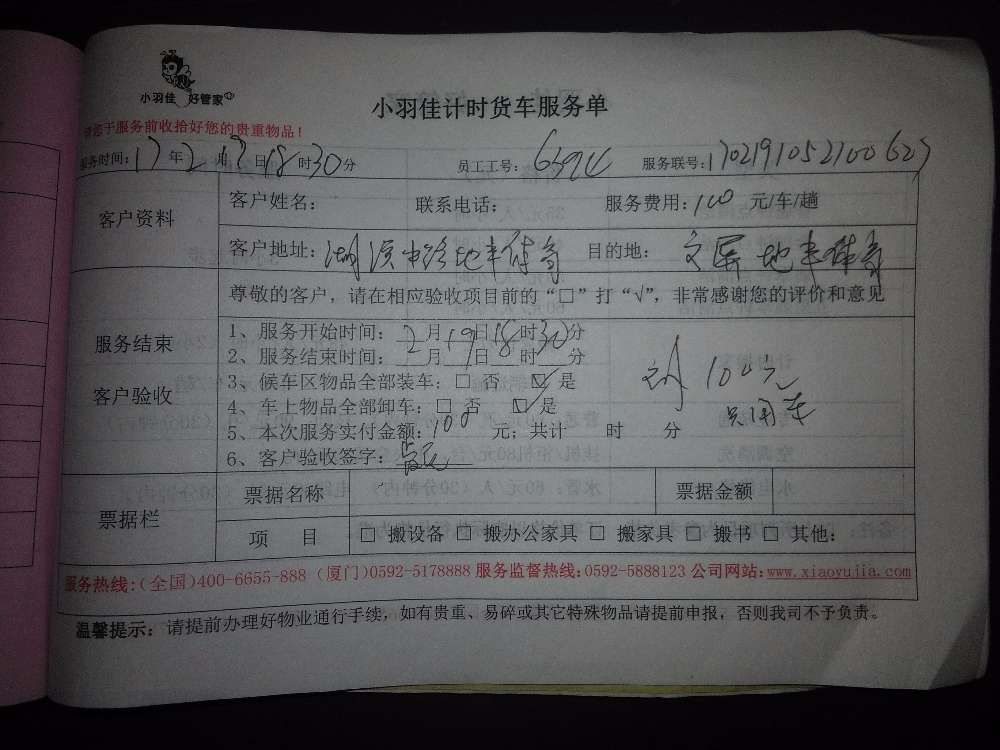 小羽佳 好管家
小羽佳计时货车服务单
请您于服务前收拾好您的贵重物品！
服务时间：17年2月19日18时30分 员工工号： 服务联号：
客户资料
客户姓名： 联系电话： 服务费用：100 元/车/趟
客户地址：湖滨中路地丰体育 目的地：文屏地丰体育
尊敬的客户，请在相应验收项目前的“□”打“√”，非常感谢您的评价和意见
服务结束
客户验收
1、服务开始时间：2月19日18时30分
2、服务结束时间：月 日 时 分
3、候车区物品全部装车：□ 否 ☑ 是
4、车上物品全部卸车：□ 否 ☑ 是
5、本次服务实付金额：100 元；共计 时 分
6、客户验收签字：
100元
只用车
票据栏
票据名称 票据金额
项 目 □ 搬设备 □ 搬办公家具 □ 搬家具 □ 搬书 □ 其他：
服务热线：(全国)400-6655-888 (厦门)0592-5178888 服务监督热线：0592-5888123 公司网站：www.xiaoyujia.com
温馨提示：请提前办理好物业通行手续，如有贵重、易碎或其它特殊物品请提前申报，否则我司不予负责。